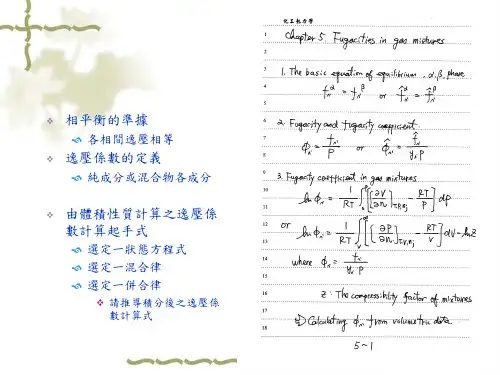 相平衡的準據
各相間逸壓相等
逸壓係數的定義
純成分或混合物各成分
由體積性質計算之逸壓係
數計算起手式
選定一狀態方程式
選定一混合律
選定一併合律
請推導積分後之逸壓係
數計算式
化工熱力學
1 Chapter 5. Fugacities in gas mixtures
2
3 1. The basic equation of equilibrium, α, β, phase
4 f_i^α = f_i^β or f̂_i^α = f̂_i^β
5
6 2. Fugacity and fugacity coefficient
7 ϕ_i = f_i / P or ϕ̂_i = f̂_i / y_i P
8
9 3. Fugacity coefficient in gas mixtures
10
11 ln ϕ_i = 1/RT ∫ [(∂V/∂n_i)_{T,P,n_j} − RT/P] dP
12
13 or ln ϕ_i = 1/RT ∫ [(∂P/∂n_i)_{T,V,n_j} − RT/V] dV − ln Z
14 where ϕ_i = f_i / y_i P
15
16 Z : The compressibility factor of mixtures
17
18 Calculating ϕ_i from volumetric data.
5~1